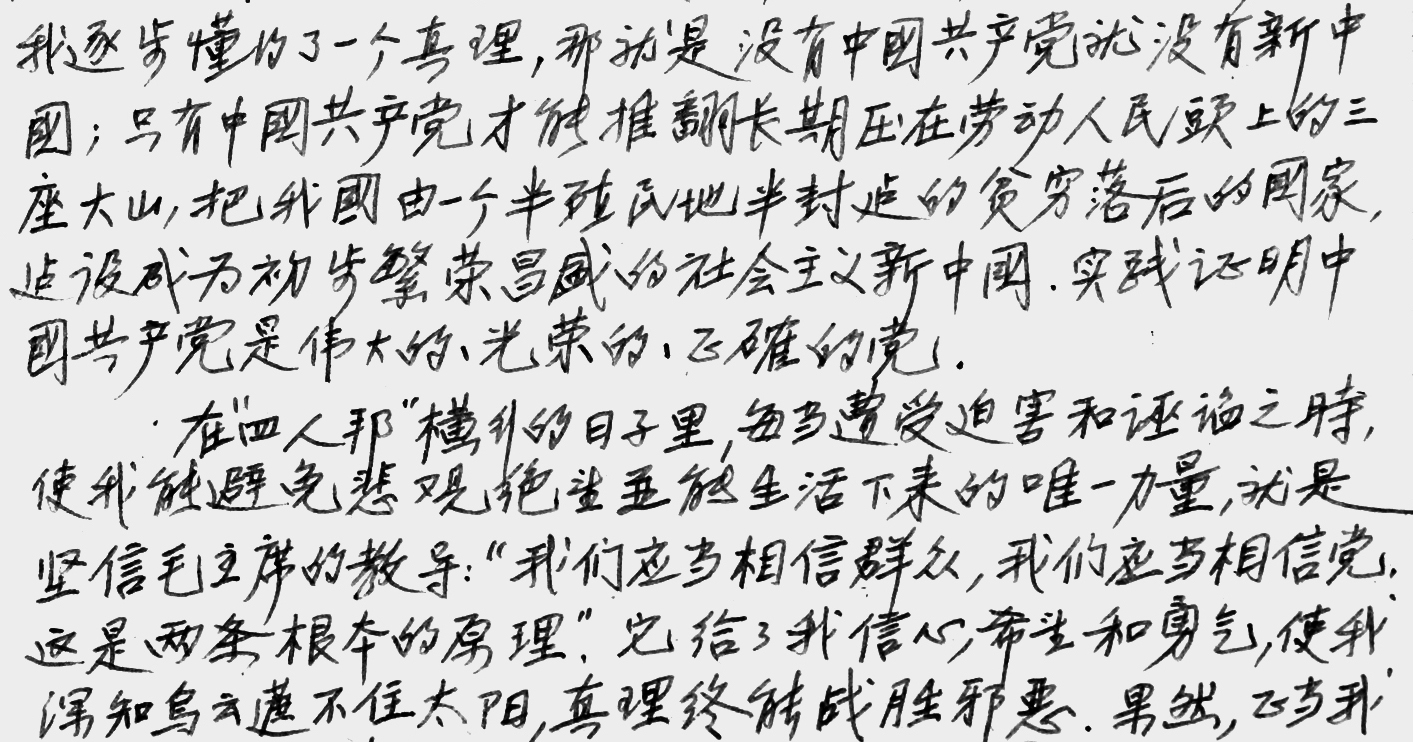 我逐步懂的了一个真理,那就是没有中國共产党就没有新中
國;只有中國共产党才能推翻长期压在劳动人民頭上的三
座大山,把我國由一个半殖民地半封建的贫穷落后的國家,
建设成为初步繁荣昌盛的社会主义新中國.实践证明中
國共产党是伟大的、光荣的、正確的党.
在"四人邦"横行的日子里,每当遭受迫害和诬谄之時,
使我能避免悲观绝望並能生活下来的唯一力量,就是
坚信毛主席的教导:"我们应当相信群众,我们应当相信党.
这是两条根本的原理".它给了我信心,希望和勇气,使我
深知乌云遮不住太阳,真理终能战胜邪恶.果然,正当我